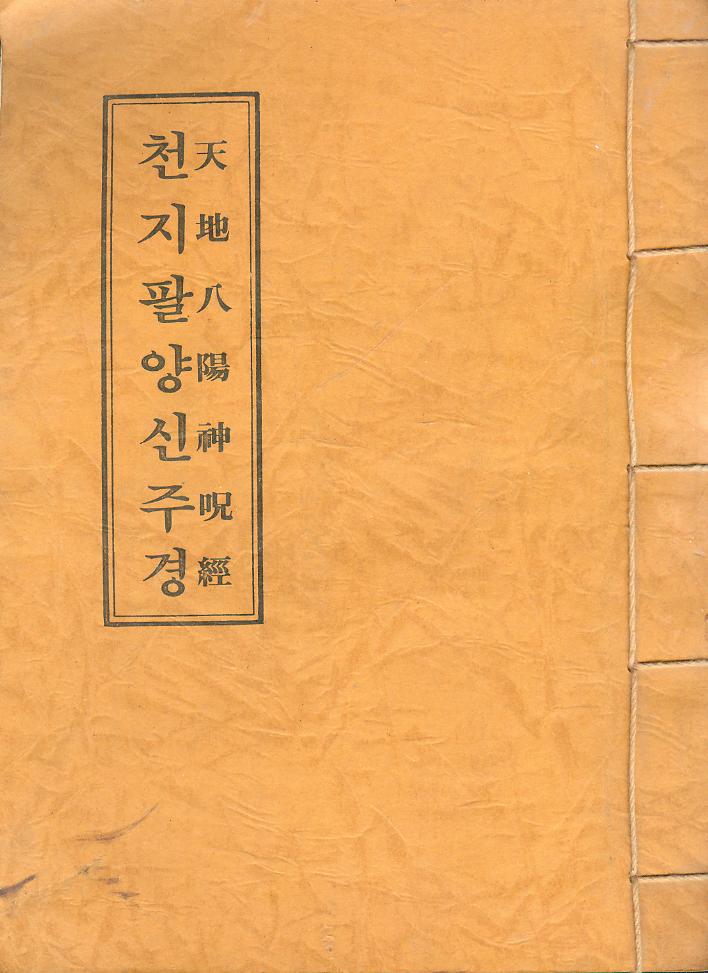 天地八陽神呪經
천지팔양신주경